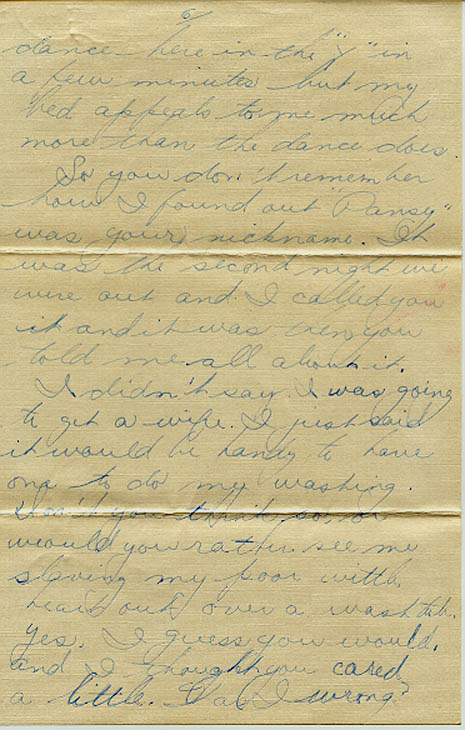 6/
dance here in the "Y" in
a few minutes but my
bed appeals to me much
more than the dance does.
So you don't remember
how I found out "Pansy"
was your nickname. It
was the second night we
were out and I called you
it and it was then you
told me all about it.
I didn't say I was going
to get a wife. I just said
it would be handy to have
one to do my washing.
Don't you think so, or
would you rather see me
slaving my poor wittle
heart out over a wash tub.
Yes, I guess you would,
and I thought you cared
a little. Was I wrong?